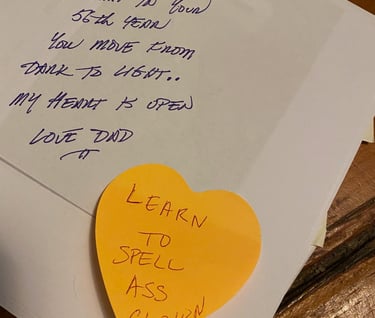 IN YOUR
56th YEAR
YOU MOVE FROM
DARK TO LIGHT..
MY HEART IS OPEN
LOVE DAD
LEARN
TO
SPELL
ASS
CLOWN